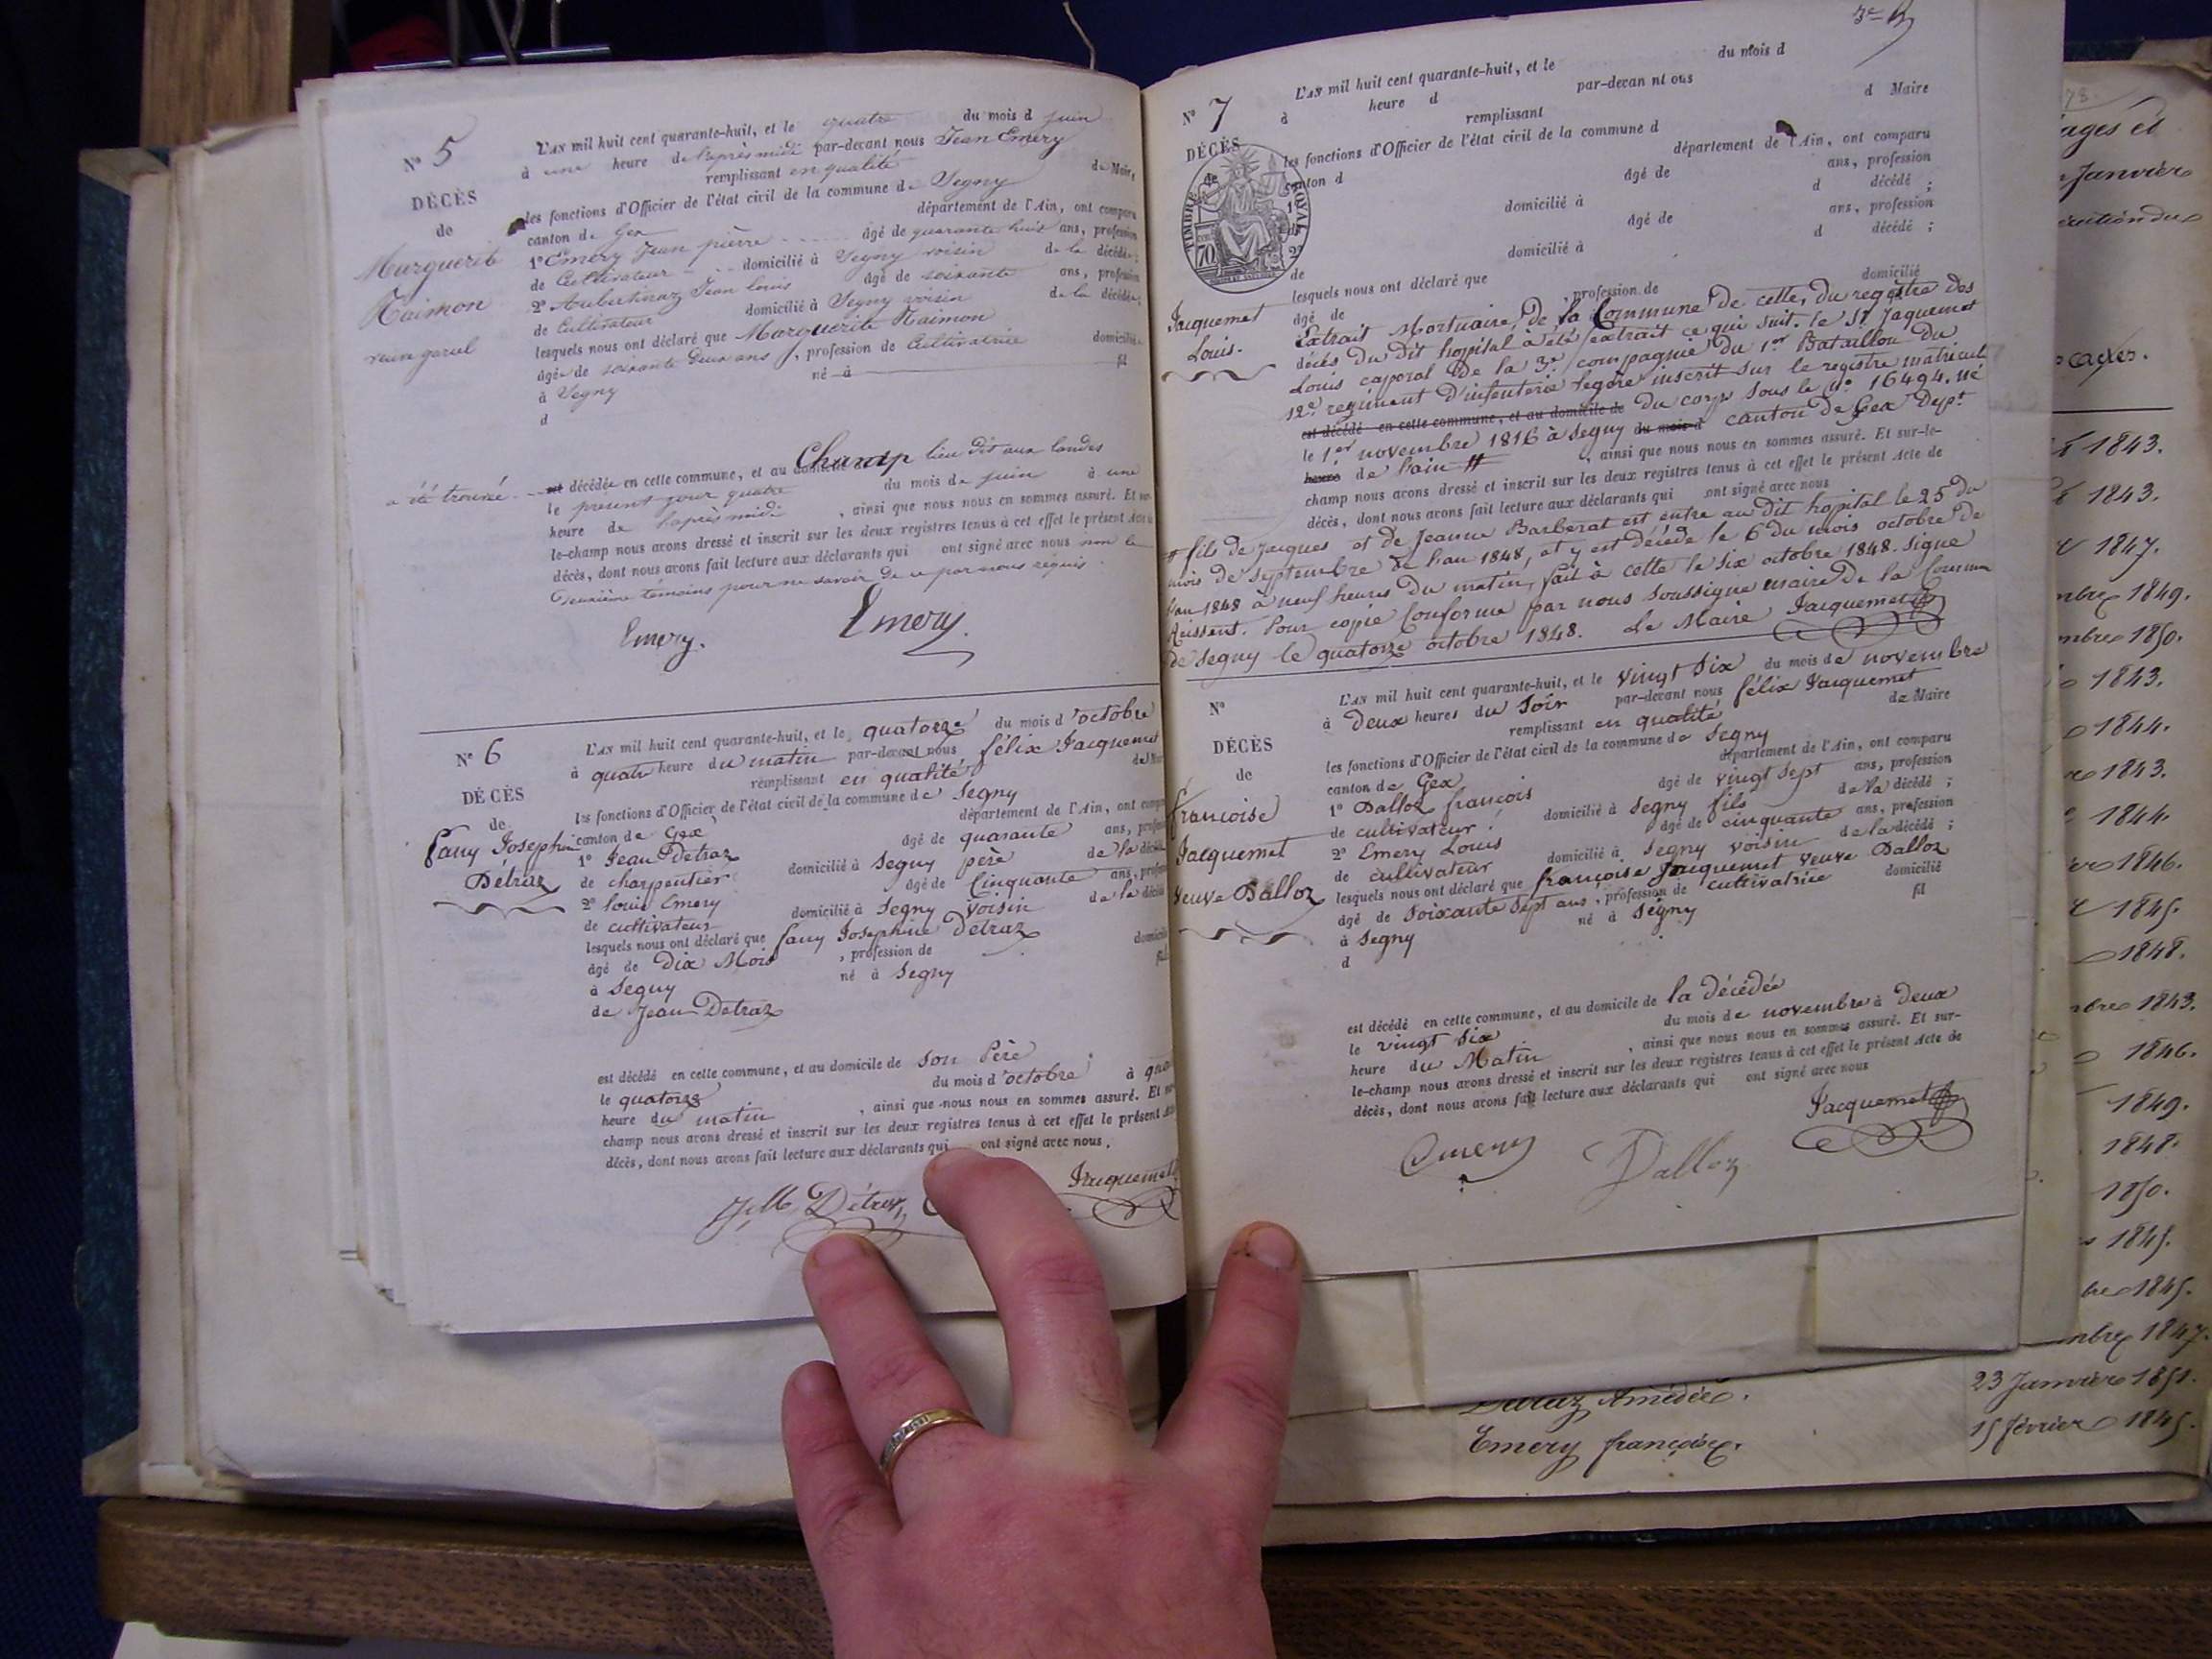 N° 5
DÉCÈS
de
Marguerite
Raimon
veuve
L'AN mil huit cent quarante-huit, et le quatre du mois d juin
à une heure de l'après midi par-devant nous Jean Emery
remplissant en qualité de Maire
les fonctions d'Officier de l'état civil de la commune de Segny
canton de Gex département de l'Ain, ont comparu
1° Emery Jean pierre âgé de quarante huit ans, profession
de Cultivateur domicilié à Segny voisin de la décédée;
2° Jean louis âgé de soixante ans, profession
de Cultivateur domicilié à Segny voisin de la décédée;
lesquels nous ont déclaré que Marguerite Raimon
âgée de soixante deux ans, profession de Cultivatrice domicilié
à Segny né à fil
d
a été trouvé est décédée en cette commune, et au domicile Champ lieu dit aux landes
le présent jour quatre du mois de juin à une
heure de l'après midi, ainsi que nous nous en sommes assuré. Et sur-
le-champ nous avons dressé et inscrit sur les deux registres tenus à cet effet le présent Acte de
décès, dont nous avons fait lecture aux déclarants qui ont signé avec nous non le
deuxième témoins pour ne savoir de ce par nous requis.
Emery. Emery.
N° 6
DÉCÈS
de
fany Josephine
Détraz
L'AN mil huit cent quarante-huit, et le quatorze du mois d'octobre
à quatre heure du matin par-devant nous félix Jacquemet
remplissant en qualité de Maire
les fonctions d'Officier de l'état civil de la commune de Segny
canton de Gex département de l'Ain, ont comparu
1° Jean Detraz âgé de quarante ans, profession
de charpentier domicilié à Segny père de la décédé
2° louis Emery âgé de Cinquante ans, profession
de cultivateur domicilié à Segny voisin de la décédé
lesquels nous ont déclaré que fany Josephine Detraz
âgé de Dix Mois, profession de domicilié
à Segny né à Segny fil
de Jean Detraz
est décédé en cette commune, et au domicile de son Père
le quatorze du mois d'octobre à
heure du matin, ainsi que nous nous en sommes assuré. Et
champ nous avons dressé et inscrit sur les deux registres tenus à cet effet le présent
décès, dont nous avons fait lecture aux déclarants qui ont signé avec nous.
Détraz Jacquemet
N° 7
DÉCÈS
de
TIMBRE ROYAL
70
Jacquemet
Louis.
L'AN mil huit cent quarante-huit, et le du mois d
à heure d par-devan nt ous
remplissant d Maire
les fonctions d'Officier de l'état civil de la commune d
canton d département de l'Ain, ont comparu
1° âgé de ans, profession
de domicilié à d décédé;
2° âgé de ans, profession
de domicilié à d décédé;
lesquels nous ont déclaré que
âgé de, profession de domicilié
Extrait Mortuaire, de la Commune de cette, du registre des
décès du dit hopital à été extrait ce qui suit. le Sr Jaquemet
Louis caporal de la 3e compagnie du 1er Bataillon du
12e regiment D'infenterie legère inscrit sur le registre matricule
est décédé en cette commune, et au domicile de du corps sous le n° 16494. né
le 1er novembre 1816 à Segny du mois d canton de Gex Dept
heure de l'ain #, ainsi que nous nous en sommes assuré. Et sur-le-
champ nous avons dressé et inscrit sur les deux registres tenus à cet effet le présent Acte de
décès, dont nous avons fait lecture aux déclarants qui ont signé avec nous
# fils de jacques et de jeanne Barberat est entre au dit hopital le 25 du
mois de Septembre de l'an 1848, et y est décédé le 6 du mois octobre de
l'an 1848 à neuf heures du matin, fait à cette le six octobre 1848. Signe
Reissent. Pour copie Conforme par nous soussigne maire de la Commune
de Segny le quatorze octobre 1848. Le Maire Jacquemet
N°
DÉCÈS
de
françoise
Jacquemet
Veuve Dalloz
L'AN mil huit cent quarante-huit, et le vingt Six du mois de novembre
à Deux heures du Soir par-devant nous félix Jacquemet
remplissant en qualité de Maire
les fonctions d'Officier de l'état civil de la commune de Segny
canton de Gex département de l'Ain, ont comparu
1° Dalloz françois âgé de vingt Sept ans, profession
de cultivateur domicilié à Segny fils de la décédé;
2° Emery Louis âgé de cinquante ans, profession
de cultivateur domicilié à Segny voisin de la décédé;
lesquels nous ont déclaré que françoise Jacquemet veuve Dalloz
âgé de Soixante Sept ans, profession de cultivatrice domicilié
à Segny né à Segny fil
d
est décédé en cette commune, et au domicile de la décédée
le vingt Six du mois de novembre à Deux
heure du Matin, ainsi que nous nous en sommes assuré. Et sur-
le-champ nous avons dressé et inscrit sur les deux registres tenus à cet effet le présent Acte de
décès, dont nous avons fait lecture aux déclarants qui ont signé avec nous
Jacquemet
Emery Dalloz
Janvier
1843.
1843.
1847.
1849.
1850.
1843.
1844.
1843.
1844.
1846.
1845.
1848.
1843.
1846.
1849.
1848.
1850.
1845.
1845.
1847.
Amédée. 23 Janvier 1851.
Emery françoise. 15 février 1845.